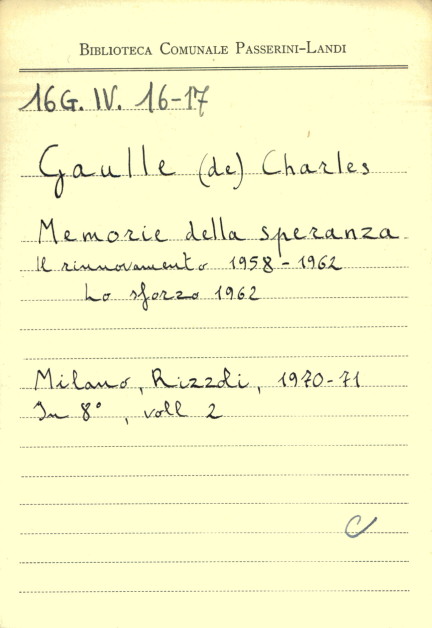 Biblioteca Comunale Passerini-Landi
16G. IV. 16-17
Gaulle (de) Charles
Memorie della speranza
Il rinnovamento 1958-1962
Lo sforzo 1962
Milano, Rizzoli, 1970-71
In 8°, voll 2
C